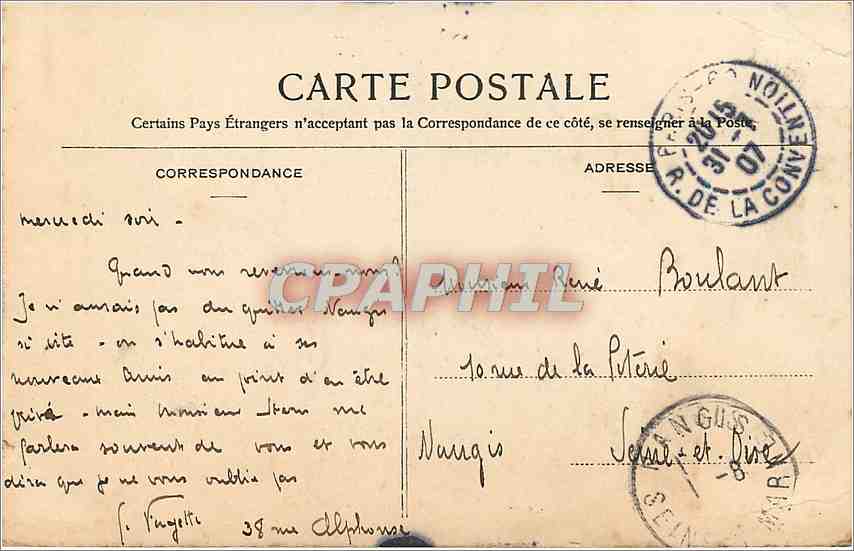 CARTE POSTALE
Certains Pays Étrangers n'acceptant pas la Correspondance de ce côté, se renseigner à la Poste,
CORRESPONDANCE
ADRESSE
R. DE LA CONVENTION
20 15
31
07
mercredi soir -
Quand nous reverrons-nous?
Je n'aurais pas du quitter Nangis
si vite - on s'habitue à ses
nouveaux amis au point d'en être
privé - mais Monsieur me
parlera souvent de vous et vous
dira que je ne vous oublie pas
38 rue Alphonse
CPAPHIL
Monsieur René Boulant
10 rue de la Poterie
Nangis Seine-et-Oise
NANGIS
SEINE MARNE